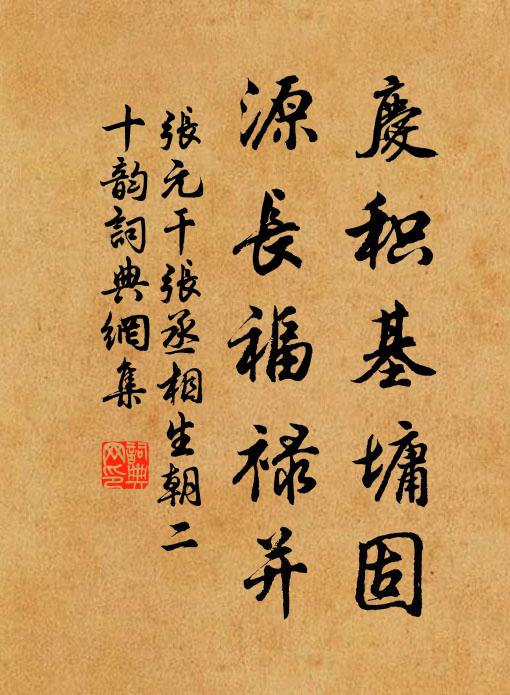 慶积基墉固
源長福禄并
張元干張丞相生朝二
十韵詞典網集
詞典
网印